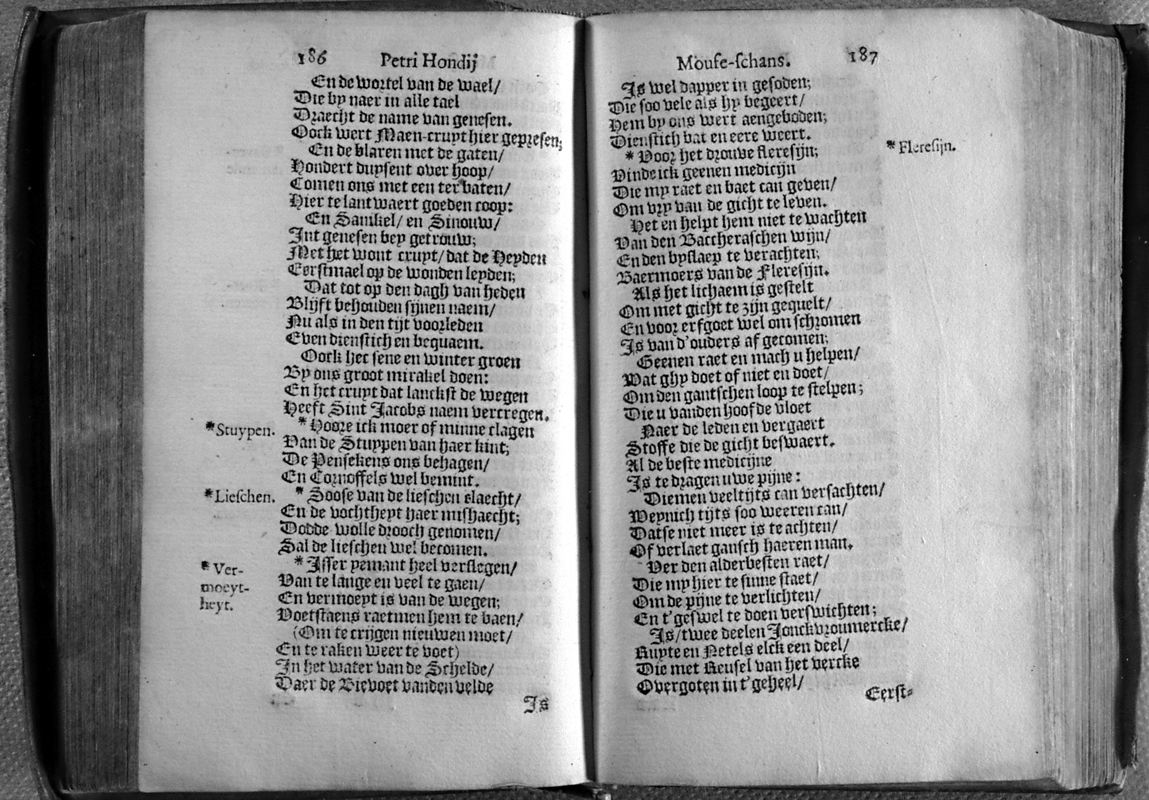 186 Petri Hondij
En de wortel van de wael/
Die by naer in alle tael
Draecht de name van genesen.
Oock wert Maen-cruyt hier gepresen;
En de blaren met de gaten/
Hondert duysent over hoop/
Comen ons met een ter baten/
Hier te lantwaert goeden coop:
En Sanikel/ en Sinouw/
Int genesen bey getrouw;
Met het wont cruyt/ dat de Heyden
Eerstmael op de wonden leyden;
Dat tot op den dagh van heden
Blijft behouden sijnen naem/
Nu als in den tijt voorleden
Even dienstich en bequaem.
Oock het sene en winter groen
By ons groot mirakel doen:
En het cruyt dat lanckst de wegen
Heeft Sint Jacobs naem vercregen.
*Stuypen.
* Hoore ick moer of minne clagen
Van de Stuypen van haer kint;
De Pensekens ons behagen/
En Cornoffels wel bemint.
*Lieschen.
* Soose van de lieschen claecht/
En de vochtheyt haer mishaecht;
Dodde wolle drooch genomen/
Sal de lieschen wel becomen.
* Ver-
moeyt-
heyt.
* Isser yemant heel verslegen/
Van te lange en veel te gaen/
En vermoeyt is van de wegen;
Voetstaens raetmen hem te vaen/
(Om te crijgen nieuwen moet/
En te raken weer te voet)
In het water van de Schelde/
Daer de Bievoet vanden velde
Is
Mouse-schans. 187
Is wel dapper in gesoden;
Die soo vele als hy begeert/
Hem by ons wert aengeboden;
Dienstich bat en eere weert.
* Fleresijn.
* Voor het drouve fleresijn;
Vinde ick geenen medicijn
Die my raet en baet can geven/
Om vry van de gicht te leven.
Het en helpt hem niet te wachten
Van den Baccheraschen wijn/
En den byslaep te verachten;
Baermoers van de Fleresijn.
Als het lichaem is gestelt
Om met gicht te zijn gequelt/
En voor erfgoet wel om schromen
Is van d'ouders af gecomen;
Geenen raet en mach u helpen/
Wat ghy doet of niet en doet/
Om den gantschen loop te stelpen;
Die u vanden hoofde vloet
Naer de leden en vergaert
Stoffe die de gicht beswaert.
Al de beste medicijne
Is te dragen uwe pijne:
Diemen veeltijts can versachten/
Weynich tijts soo weeren can/
Datse niet meer is te achten/
Of verlaet gansch haeren man.
Ver den alderbesten raet/
Die my hier te sinne staet/
Om de pijne te verlichten/
En t'geswel te doen verswichten;
Is/ twee deelen Jonckvroumercke/
Ruyte en Netels elck een deel/
Die met Reusel van het vercke
Overgoten in t'geheel/
Eerst-